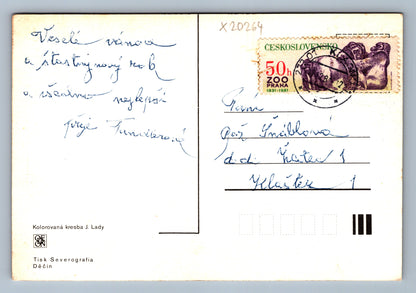 X20264
Veselé vánoce
a šťastný nový rok
a všechno nejlepší
přeje
ČESKOSLOVENSKO
50h
ZOO
PRAHA
1931-1981
Paní
Šnáblová
d.d.
Klášter 1
Kolorovaná kresba J. Lady
Tisk Severografia
Děčín